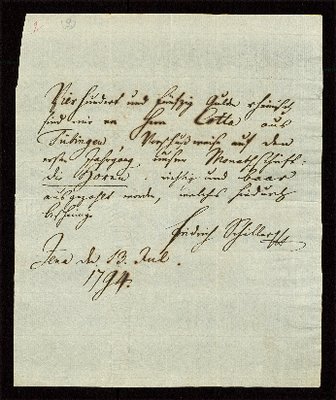 Vierhundert und fünfzig Gulden rheinisch
sind mir von Herrn Cotta aus
Tübingen, Vorschußweise auf den
ersten Jahrgang unsrer Monathschrift:
die Horen, richtig und baar
ausgezahlt worden, welches hiedurch
bescheinige
Fridrich Schiller
Jena den 13. Jul.
1794.